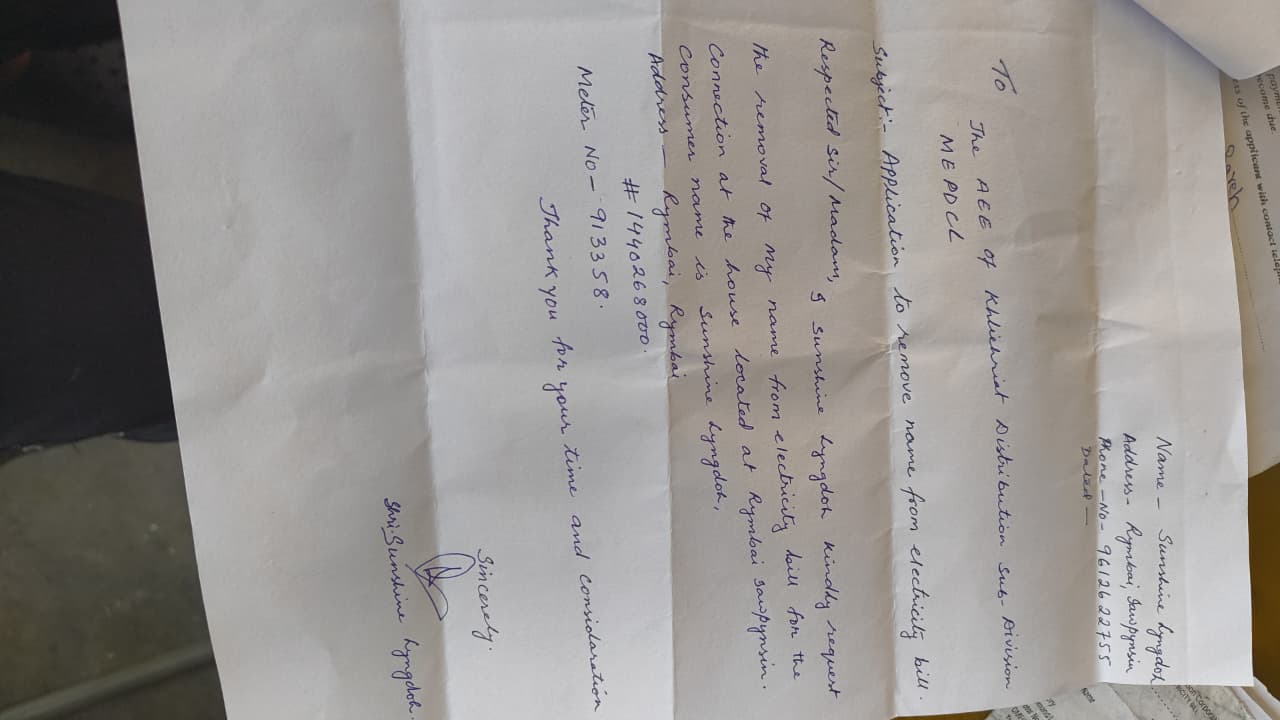 Name - Sunshine Lyngdoh
Address - Rymbai, Sawpynsin
Phone -No- 9612622755
Dated -
To
The AEE of Khliehriat Distribution Sub-Division
MEPDCL
Subject:- Application to remove name from electricity bill.
Respected Sir/Madam, I Sunshine Lyngdoh kindly request
the removal of my name from electricity bill for the
Connection at the house located at Rymbai Sawpynsin.
Consumer name is Sunshine Lyngdoh,
Address - Rymbai, Rymbai
# 1440268000.
Meter No - 913358.
Thank you for your time and consideration
Sincerely.
Shri Sunshine Lyngdoh.
become due.
of the applicant with contact